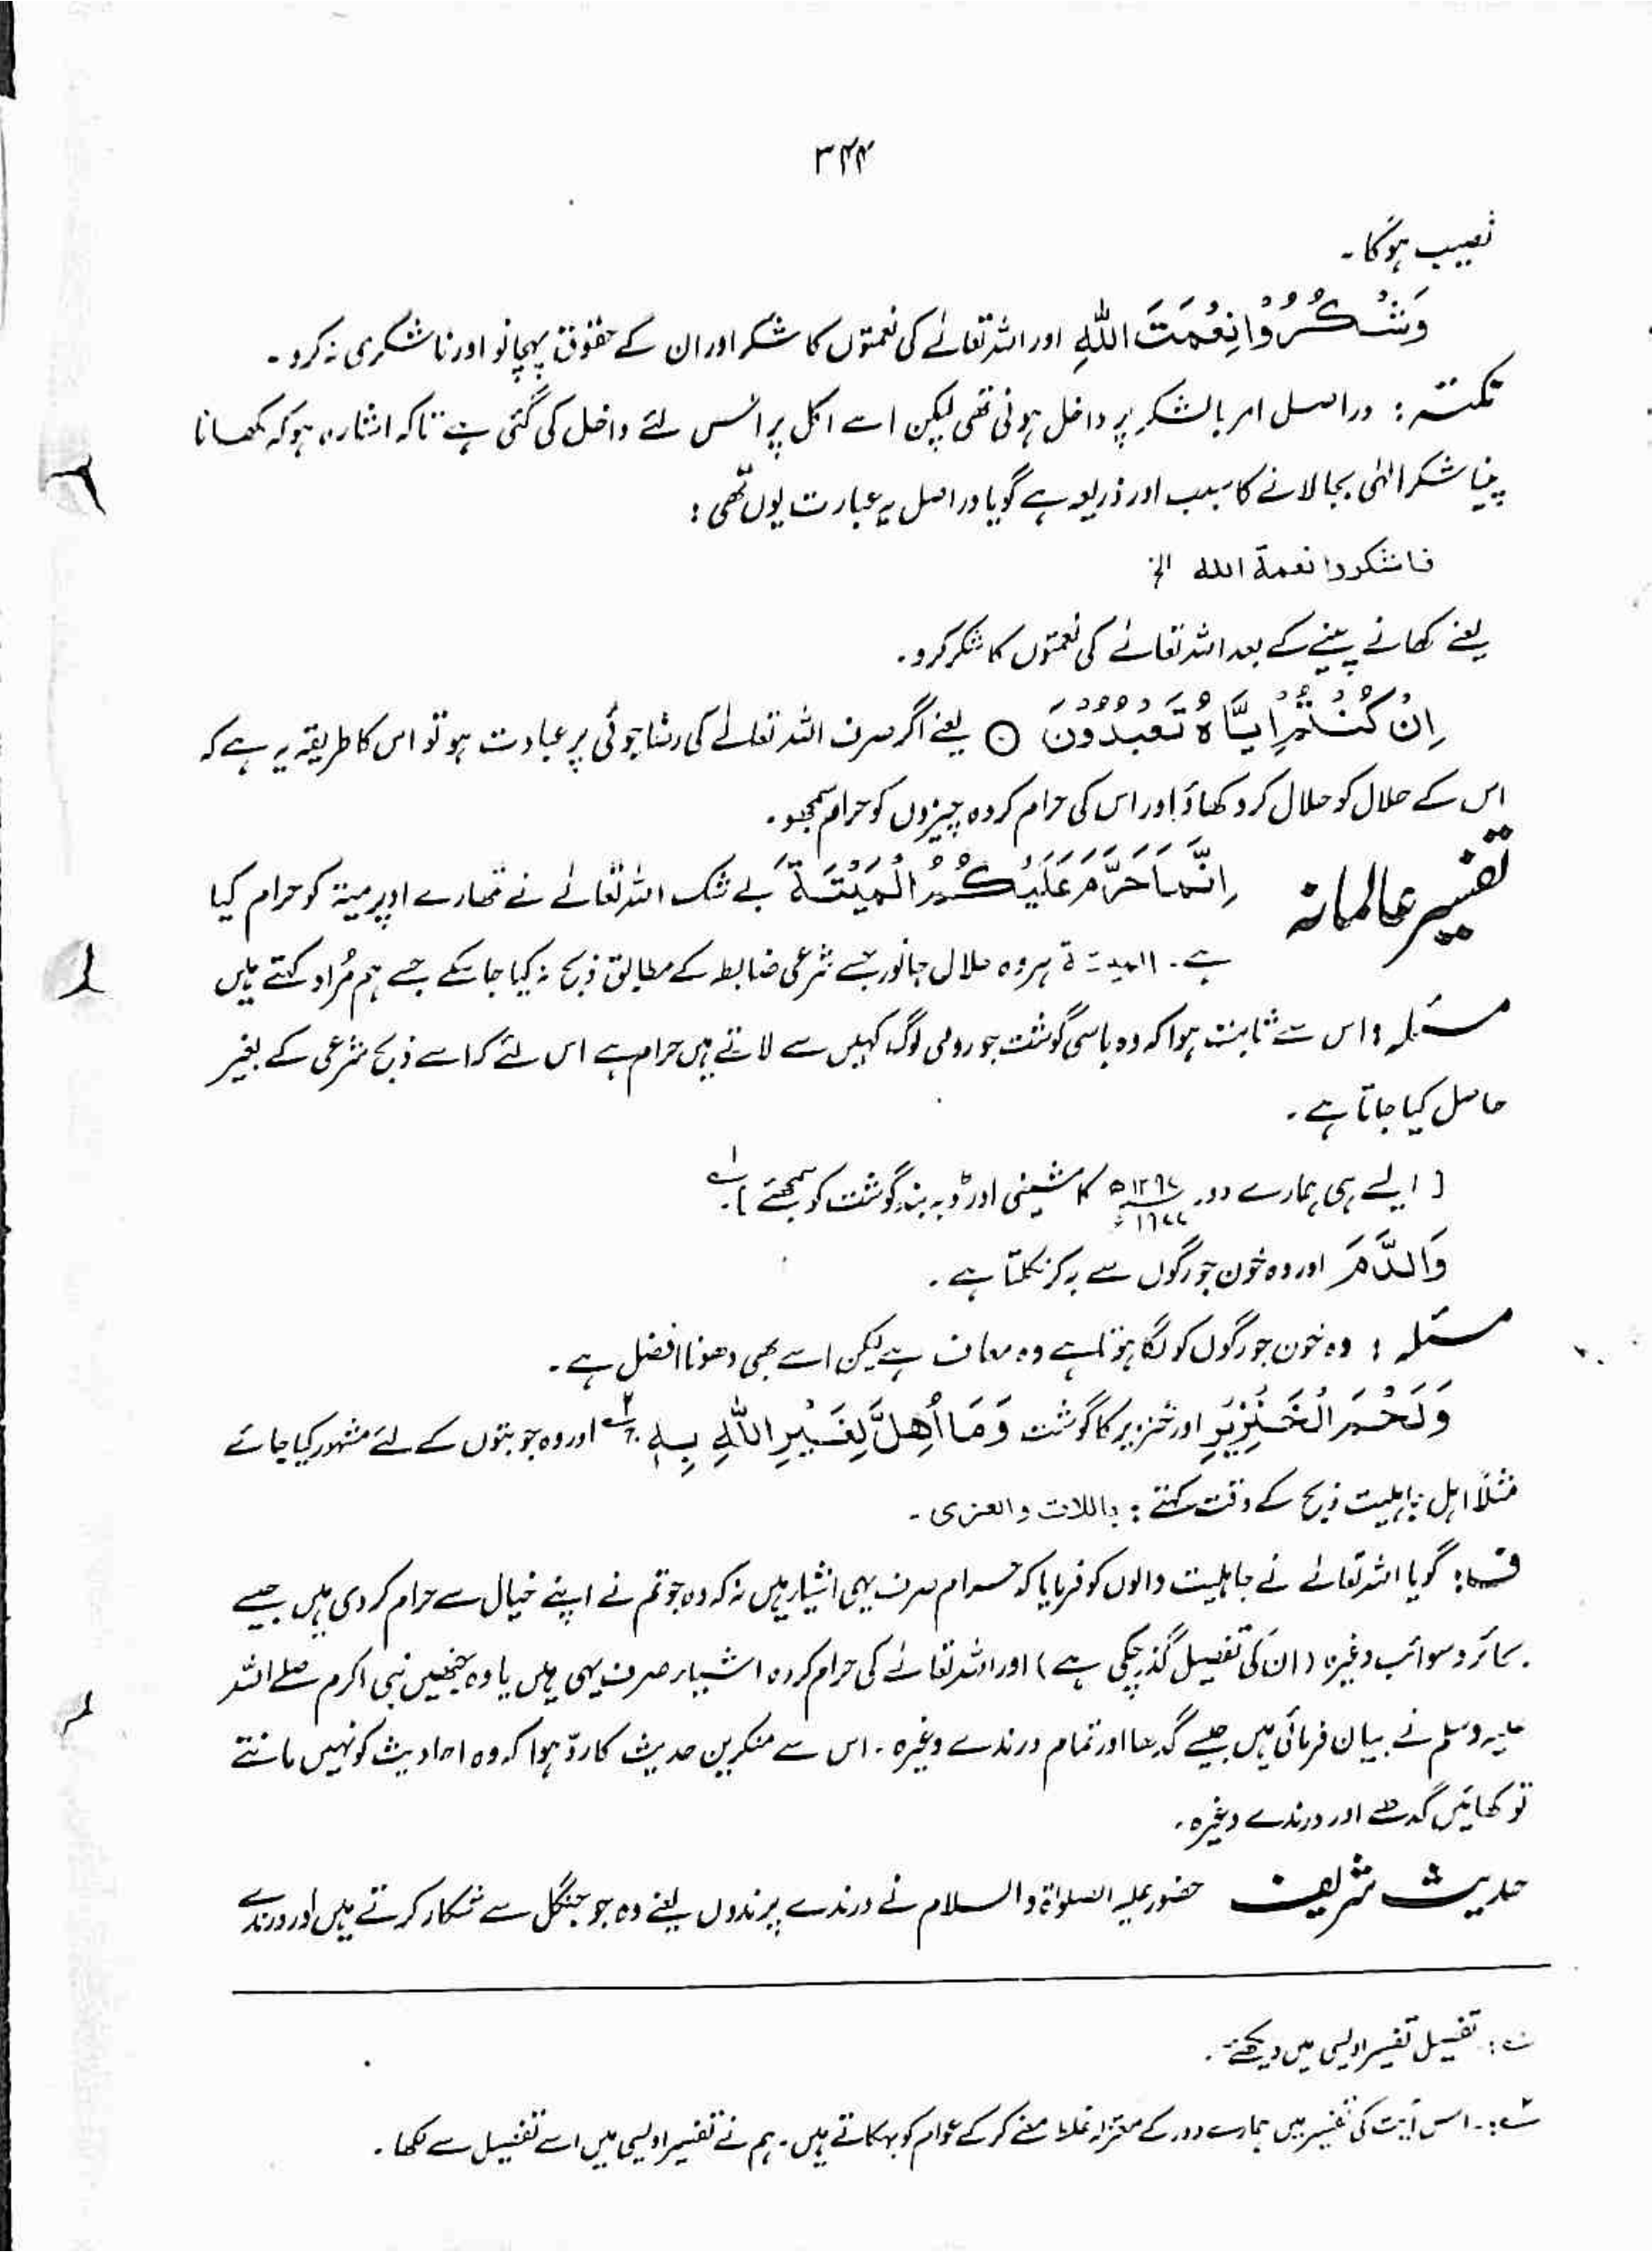 ۳۴۴
نصیب ہوگا۔
وَشْكُرُوْا نِعْمَتَ اللّٰهِ اور اللہ تعالےٰ کی نعمتوں کا شکر اور ان کے حقوق پہچانو اور ناشکری نہ کرو۔
نکتہ : دراصل امر بالشکر پر داخل ہونی تھی لیکن اسے اکل پر اس لئے داخل کی گئی ہے تاکہ اشارہ ہو کہ کھانا
پینا شکر الٰہی بجا لانے کا سبب اور ذریعہ ہے گویا دراصل یہ عبارت یوں تھی :
فاشكروا نعمة الله الخ
یعنے کھانے پینے کے بعد اللہ تعالےٰ کی نعمتوں کا شکر کرو۔
اِنْ كُنْتُمْ اِيَّاهُ تَعْبُدُوْنَ ○ یعنے اگر صرف اللہ تعالےٰ کی رضا جوئی پر عبادت ہو تو اس کا طریقہ یہ ہے کہ
اس کے حلال کو حلال کر و کھاؤ اور اس کی حرام کردہ چیزوں کو حرام سمجھو۔
تفسیر عالمانہ اِنَّمَا حَرَّمَ عَلَيْكُمُ الْمَيْتَةَ بے شک اللہ تعالےٰ نے تمھارے اوپر میتہ کو حرام کیا
ہے۔ الميتة ہر وہ حلال جانور جسے شرعی ضابطہ کے مطابق ذبح نہ کیا جا سکے جسے ہم مُراد کہتے ہیں
مسئلہ : اس سے ثابت ہوا کہ وہ باسی گوشت جو رومی لوگ کہیں سے لاتے ہیں حرام ہے اس لئے کہ اسے ذبح شرعی کے بغیر
حاصل کیا جاتا ہے۔
[ ایسے ہی ہمارے دور ۱۳۹۷ھ ۱۹۷۷ء کا مشینی اور ڈبہ بند گوشت کو سمجھئے ]۔ ۱؎
وَالدَّمَ اور وہ خون جو رگوں سے بہ کر نکلتا ہے۔
مسئلہ : وہ خون جو رگوں کو لگا ہوتا ہے وہ معاف ہے لیکن اسے بھی دھونا افضل ہے۔
وَلَحْمَ الْخَنْزِيْرِ اور خنزیر کا گوشت وَمَا اُهِلَّ لِغَيْرِ اللّٰهِ بِهٖ ۲؎ اور وہ جو بتوں کے لئے مشہور کیا جائے
مثلاً اہل جاہلیت ذبح کے وقت کہتے : باللات والعزى۔
ف : گویا اللہ تعالےٰ نے جاہلیت والوں کو فرمایا کہ حرام صرف یہی اشیاء ہیں نہ کہ وہ جو تم نے اپنے خیال سے حرام کر دی ہیں جیسے
بحائر و سوائب وغیرہ (ان کی تفصیل گذر چکی ہے) اور اللہ تعالےٰ کی حرام کردہ اشیاء صرف یہی ہیں یا وہ جنھیں نبی اکرم صلے اللہ
علیہ وسلم نے بیان فرمائی ہیں جیسے گدھا اور تمام درندے وغیرہ۔ اس سے منکرین حدیث کا ردّ ہوا کہ وہ احادیث کو نہیں مانتے
تو کھائیں گدھے اور درندے وغیرہ۔
حدیث شریف حضور علیہ الصلوٰۃ والسلام نے درندے پرندوں یعنے وہ جو جنگل سے شکار کرتے ہیں اور درندے
۱؎ : تفصیل تفسیر اویسی میں دیکھئے۔
۲؎ :۔ اس آیت کی تفسیر میں ہمارے دور کے معتزلہ غلط معنے کر کے عوام کو بہکاتے ہیں۔ ہم نے تفسیر اویسی میں اسے تفصیل سے لکھا۔